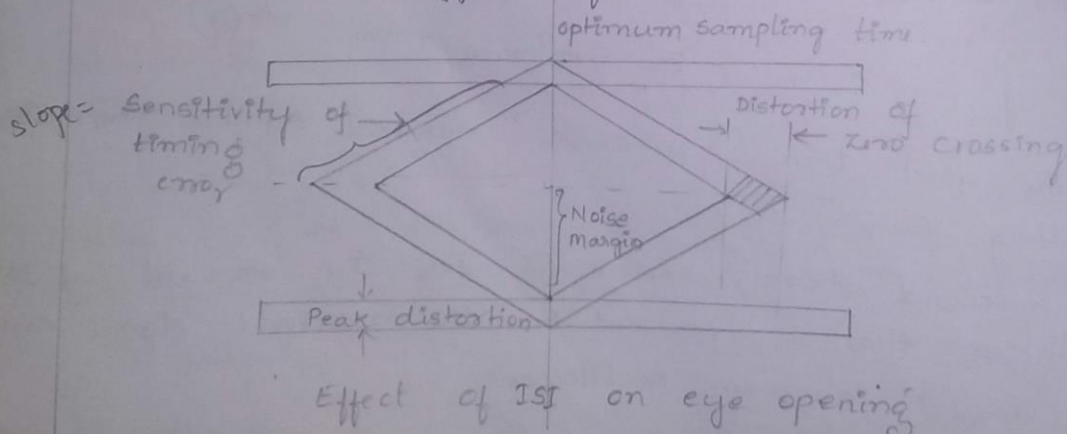 optimum sampling time
slope= Sensitivity of
timing
error
Distortion of
zero crossing
Noise
margin
Peak distortion
Effect of ISI on eye opening